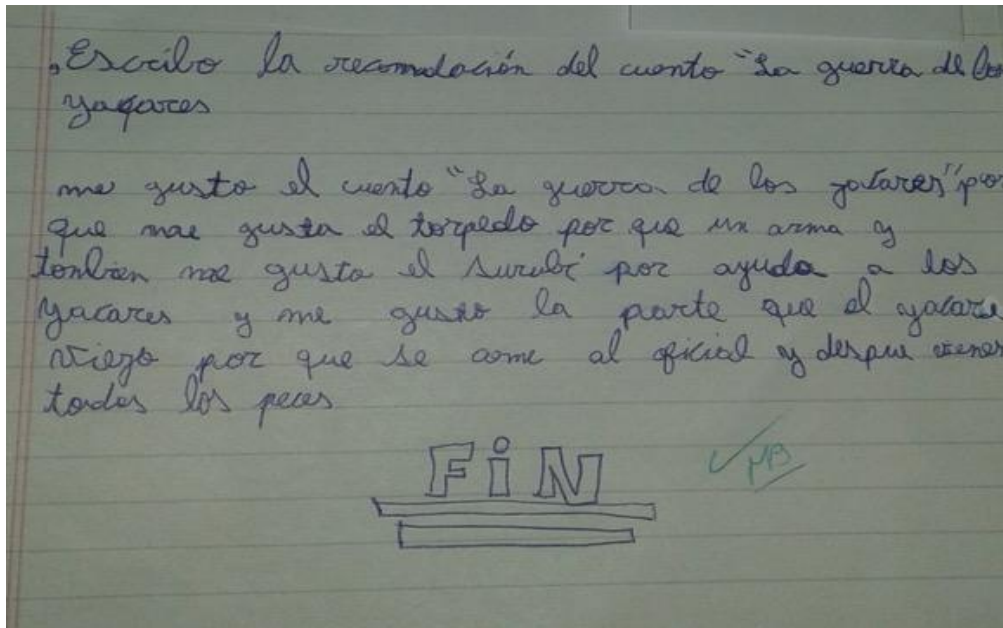 Escribo la recomendación del cuento "La guerra de los
yacares
me gusto el cuento "La guerra de los yacares" por
que mae gusta el torpedo por que un arma y
tonbien me gusto el surubí por ayuda a los
yacares y me gusto la parte que el yacare
viejo por que se come al oficial y despue vienen
todos los peces
FiN
MB